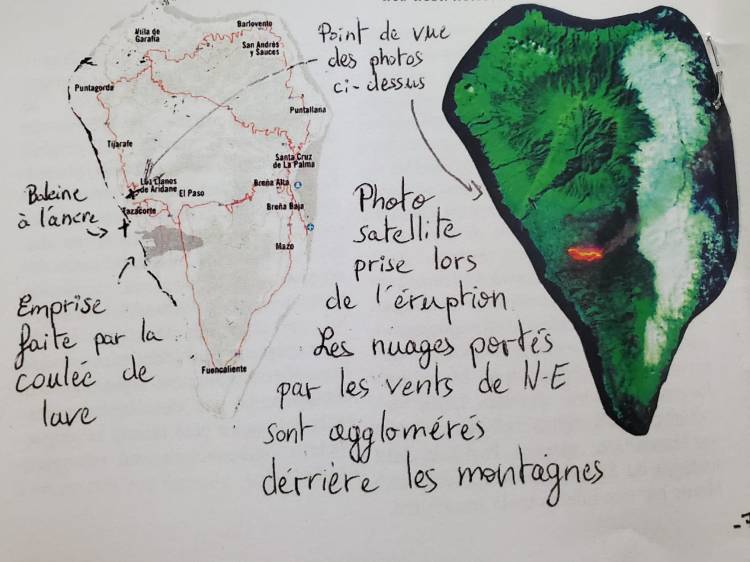 Barlovento
Villa de
Garafía
San Andrés
y Sauces
Puntagorda
Puntallana
Tijarafe
Santa Cruz
de La Palma
Los Llanos
de Aridane
El Paso
Breña Alta
Tazacorte
Breña Baja
Mazo
Fuencaliente
Point de vue
des photos
ci-dessus
Baleine
à l'ancre
Emprise
faite par la
coulée de
lave
Photo
satellite
prise lors
de l'éruption
Les nuages portés
par les vents de N-E
sont agglomérés
dérrière les montagnes